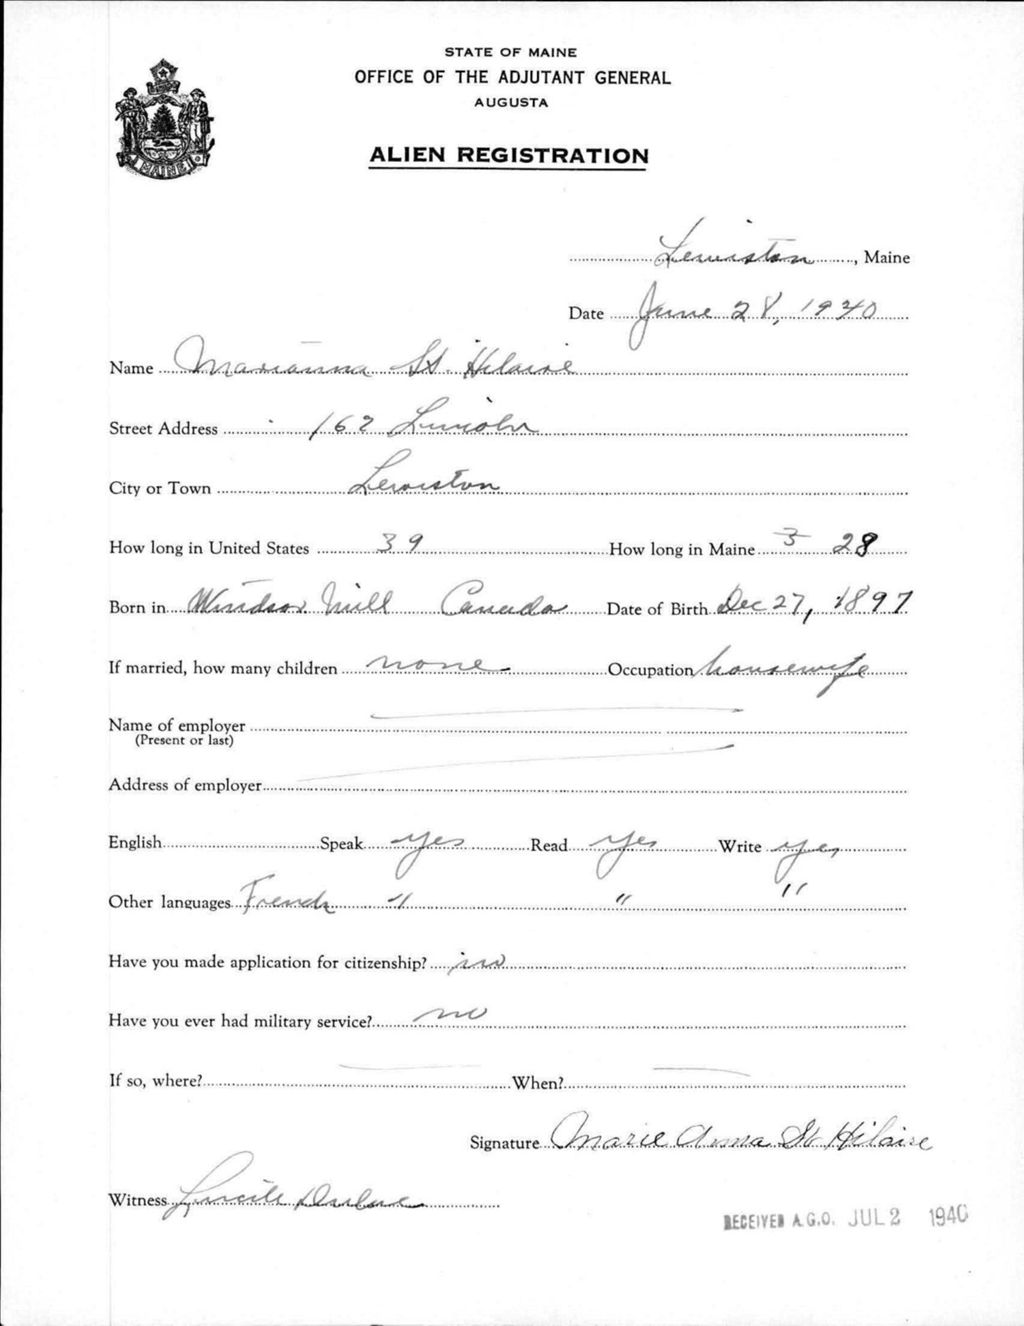 STATE OF MAINE
OFFICE OF THE ADJUTANT GENERAL
AUGUSTA
ALIEN REGISTRATION
MAINE
Lewiston, Maine
Date June 28, 1940
Name Marianna St. Hilaire
Street Address 162 Lincoln
City or Town Lewiston
How long in United States 39 How long in Maine 28
Born in Windsor Mill Canada Date of Birth Dec 27, 1897
If married, how many children none Occupation housewife
Name of employer
(Present or last)
Address of employer
English Speak yes Read yes Write yes
Other languages French " " "
Have you made application for citizenship? no
Have you ever had military service? no
If so, where? When?
Signature Marie Anna St Hilaire
Witness Lucille
RECEIVED A.G.O. JUL 2 1940